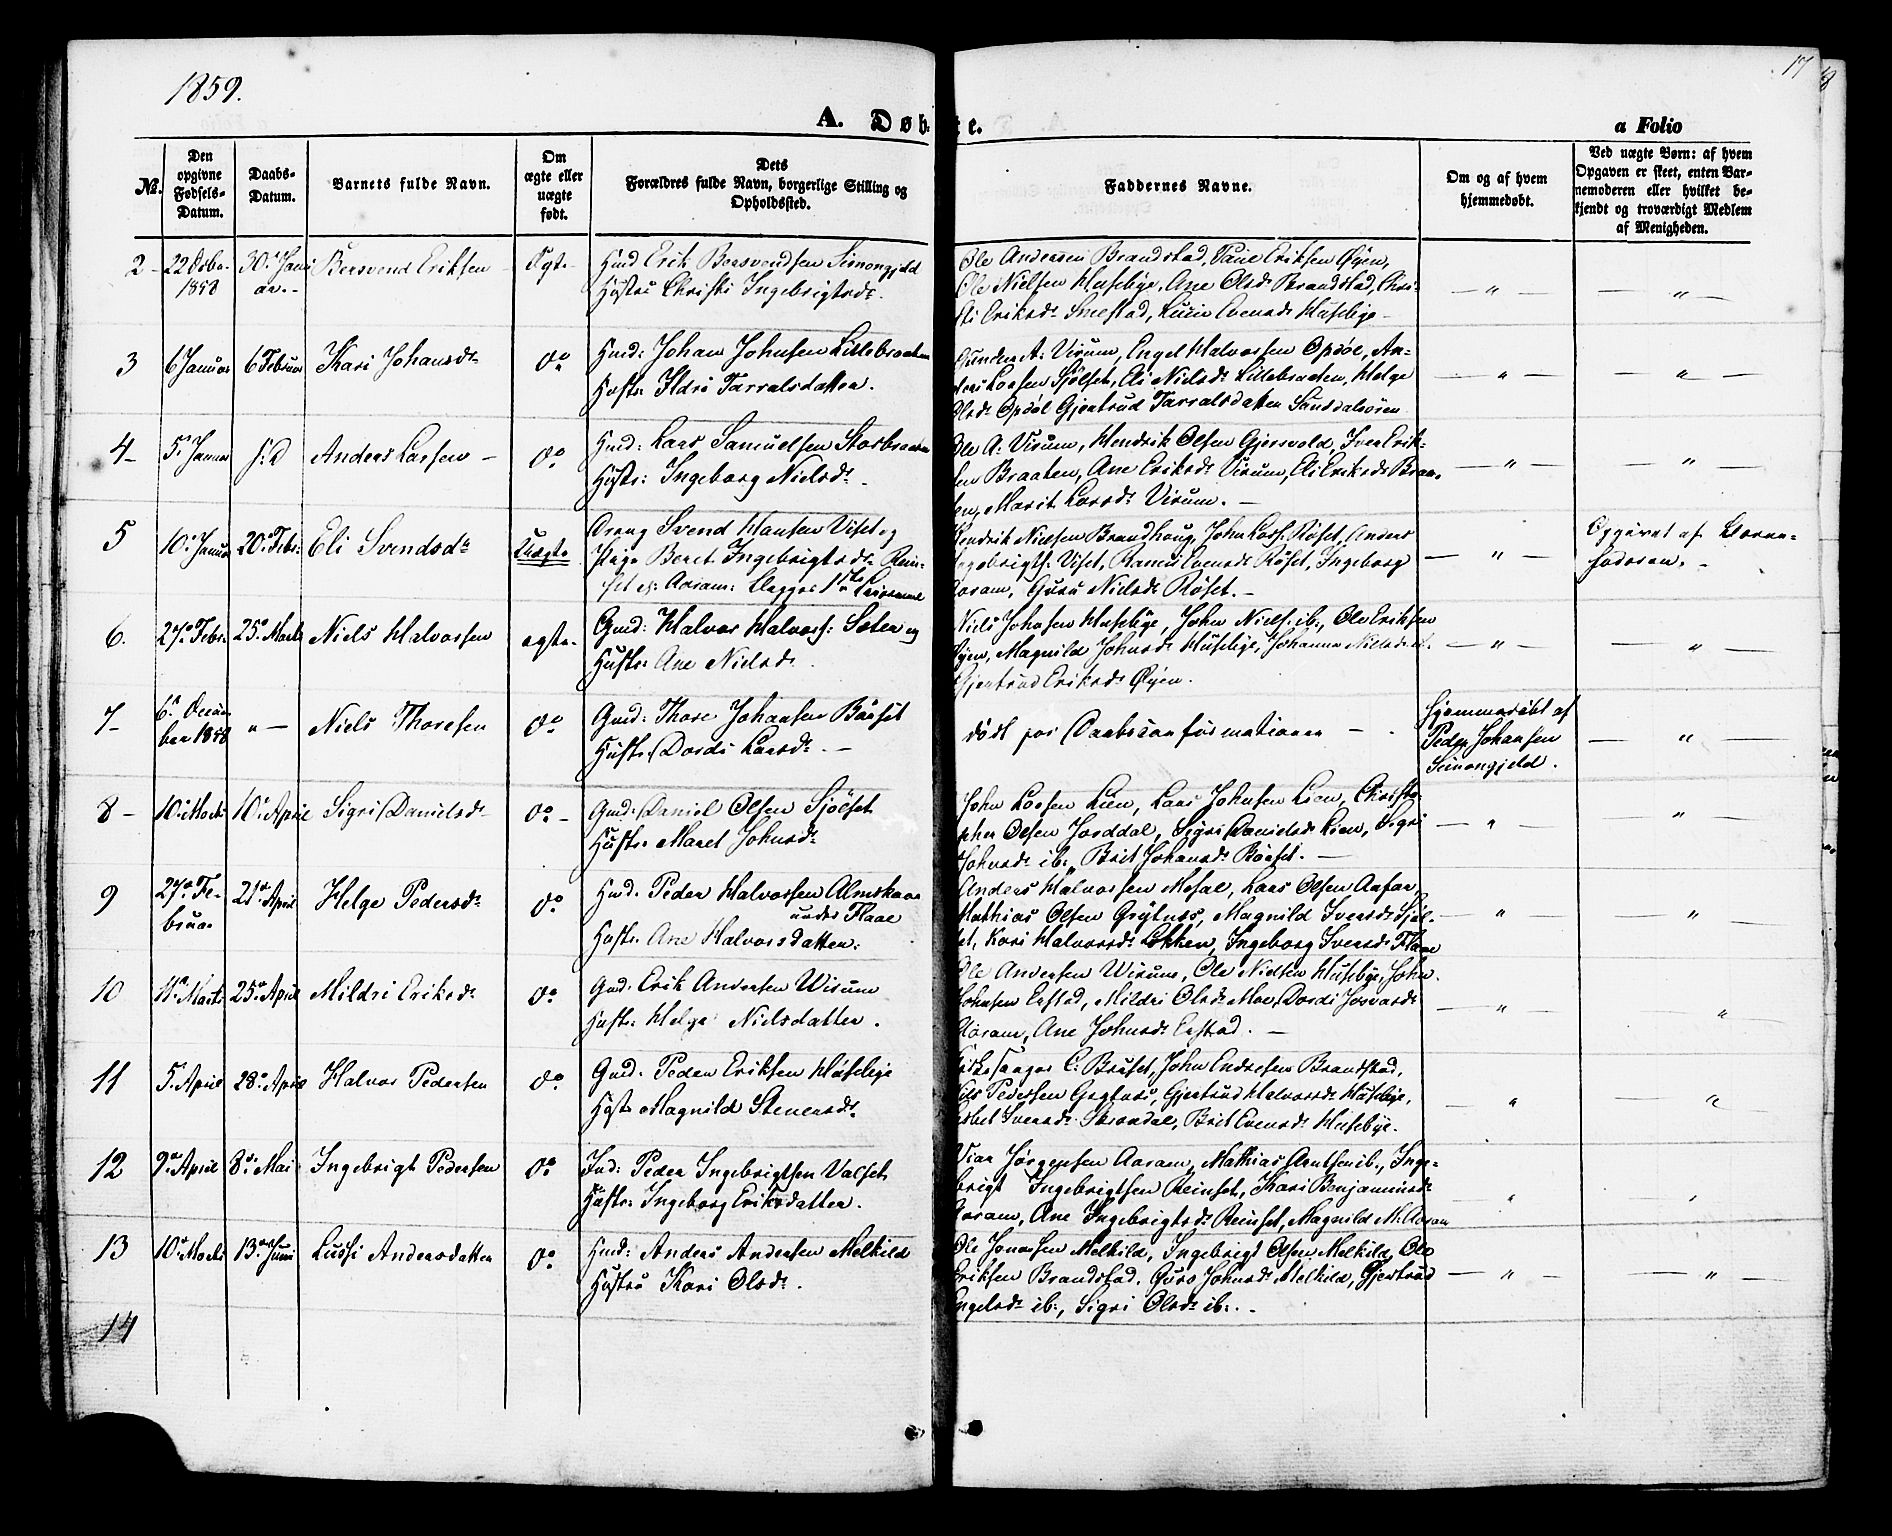 1859.
17
A. Døbte.
a Folio
No.
Den opgivne Fødsels-Datum.
Daabs-Datum.
Barnets fulde Navn.
Om ægte eller uægte født.
Dets Forældres fulde Navn, borgerlige Stilling og Opholdssted.
Faddernes Navne.
Om og af hvem hjemmedøbt.
Ved uægte Børn: af hvem Opgaven er skeet, enten Barnemoderen eller hvilket bekjendt og troværdigt Medlem af Menigheden.
2 - 22 1858 30 Janu ar.- Bersvend Eriksen Ægte
Erik Bersvendsen Simongjeld
Hustru Christi Ingebrigtsd:
Ole Andersen Brandstad, Eriksen Øyen,
Ole Nielsen Husebye, Ane Olsd: Brandstad, Chri-
sti Eriksd: Smestad, Evensd: Husebye -
3 6 Januar 6 Februar Kari Johansd: do
Johan Johnsen Lillebraaten
Hustr: Ildri Tarralsdatter.
Gunder A: Virum, Engel Halvorsen Opdøl, An-
ders Larsen Sjølset, Eli Nielsd: Lillebraaten, Helge
Olsd: Opdøl Gjertrud Tarralsdatter
4 - 5 Januar s: D Anders Larsen - do
Lars Samuelsen Storbraaten
Hustr: Ingeborg Nielsd: -
Ole A: Virum, Hendrik Olsen Gjersvold, Iver Erik-
sen Braaten, Ane Eriksd: Virum, Eli Eriksd: Braa-
ten, Marit Larsd: Virum. -
5 10 Januar 20 Febr: Eli Svendsd: Uægte
Dreng Svend Hansen Viset og
Pige Beret Ingebrigtsd: Rein-
set
Hendrik Nielsen Brandhaug, John Lars: Røset, Anders
Ingebrigts: Viset, Evensd: Røset, Ingeborg
Aaram, Guru Nielsd: Røset. -
Opgivet af Barne-
faderen. -
6. 27 Febr: 25 Marts Niels Halvorsen ægte
Gmd: Halvor Halvors: Seter og
Hustr: Ane Nielsd:
Niels Johnsen Husebye, John Niels: ib:, Ole Eriksen
Øyen, Magnild Johnsd: Husebye, Johanna Nielsd:
Gjertrud Eriksd: Øyen.
7 - 6 Decem-
ber 1858 " - Niels Thoresen do
Gmd: Thore Johansen Bøeset
Hustr: Dordi Larsd: -
død før Daabsconfirmationen -
Hjemmedøbt af
Peder Johansen
Simongjeld.
8 - 10 Marts 10 April Sigri Danielsd: do -
Gmd: Daniel Olsen Sjølset
Hustr: Maret Johnsd:
John Larsen Lien, Lars Johnsen Lien, Christo-
pher Olsen Jorddal, Sigri Danielsd: Lien, Sigri
Johnsd: ib:, Brit Johansd: Bøeset. -
9 27 Fe-
bruar 21 April Helge Pedersd: do
Peder Halvorsen Almskaar
under Flaae
Hustr: Ane Halvorsdatter:
Anders Halvorsen Mosal, Lars Olsen Aafar,
Mathias Olsen Grytnes, Magnild Iversd: Sjøl-
set, Kari Halvorsd: Løkken, Ingeborg Iversd: Flaae
10 11 Marts 25 April Mildri Eriksd: do
Gmd: Erik Andersen Wirum
Hustr: Helge Nielsdatter.
Ole Andersen Wirum, Ole Nielsen Husebye, John
Johnsen Erstad, Mildri Olsd: Moe, Dordi
Aaram, Ane Johnsd: Erstad. -
11 5 April 28 April Halvor Pedersen do
Gmd: Peder Eriksen Husebye
Hustr: Magnild Steversd:
Kirkesanger C: Bruset, John Endresen Brandstad,
Nils Pedersen Grytnes, Gjertrud Halvorsd: Husebye,
Iversd: Brit Evensd: Husebye.
12 9 April 8 Mai Ingebrigt Pedersen do
Ind: Peder Ingebrigtsen Valset
Hustr: Ingeborg Eriksdatter.
Jørgensen Aaram, Mathias Arntsen ib:, Inge-
brigt Ingebrigtsen Reinset, Kari Benjaminsd:
Aaram, Ane Ingebrigtsd: Reinset, Magnild M. Aaram
13 10 Marts 13 Juni Lussi Andersdatter do
Anders Andersen Melkild
Hustru Kari Olsd:
Ole Jonassen Melkild, Ingebrigt Olsen Melkild, Ole
Eriksen Brandstad. Guro Johnsd: Melkild, Gjertrud
Engelsd: ib:, Sigri Olsd: ib: . -
14